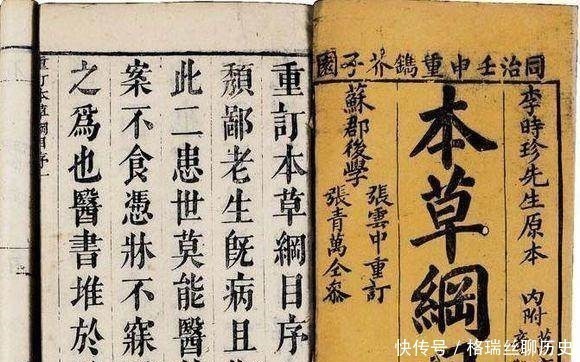 同治壬申重鐫芥子園
李時珍先生原本 內附
本草綱
蘇郡後學
張雲中 重訂
張青萬仝叅
重訂本草綱目序
頽鄙老生旣病且
此二患世莫能醫
案不食憑牀不寐
之爲也醫書堆於
重訂本草綱目序一
快传号／格瑞丝聊历史